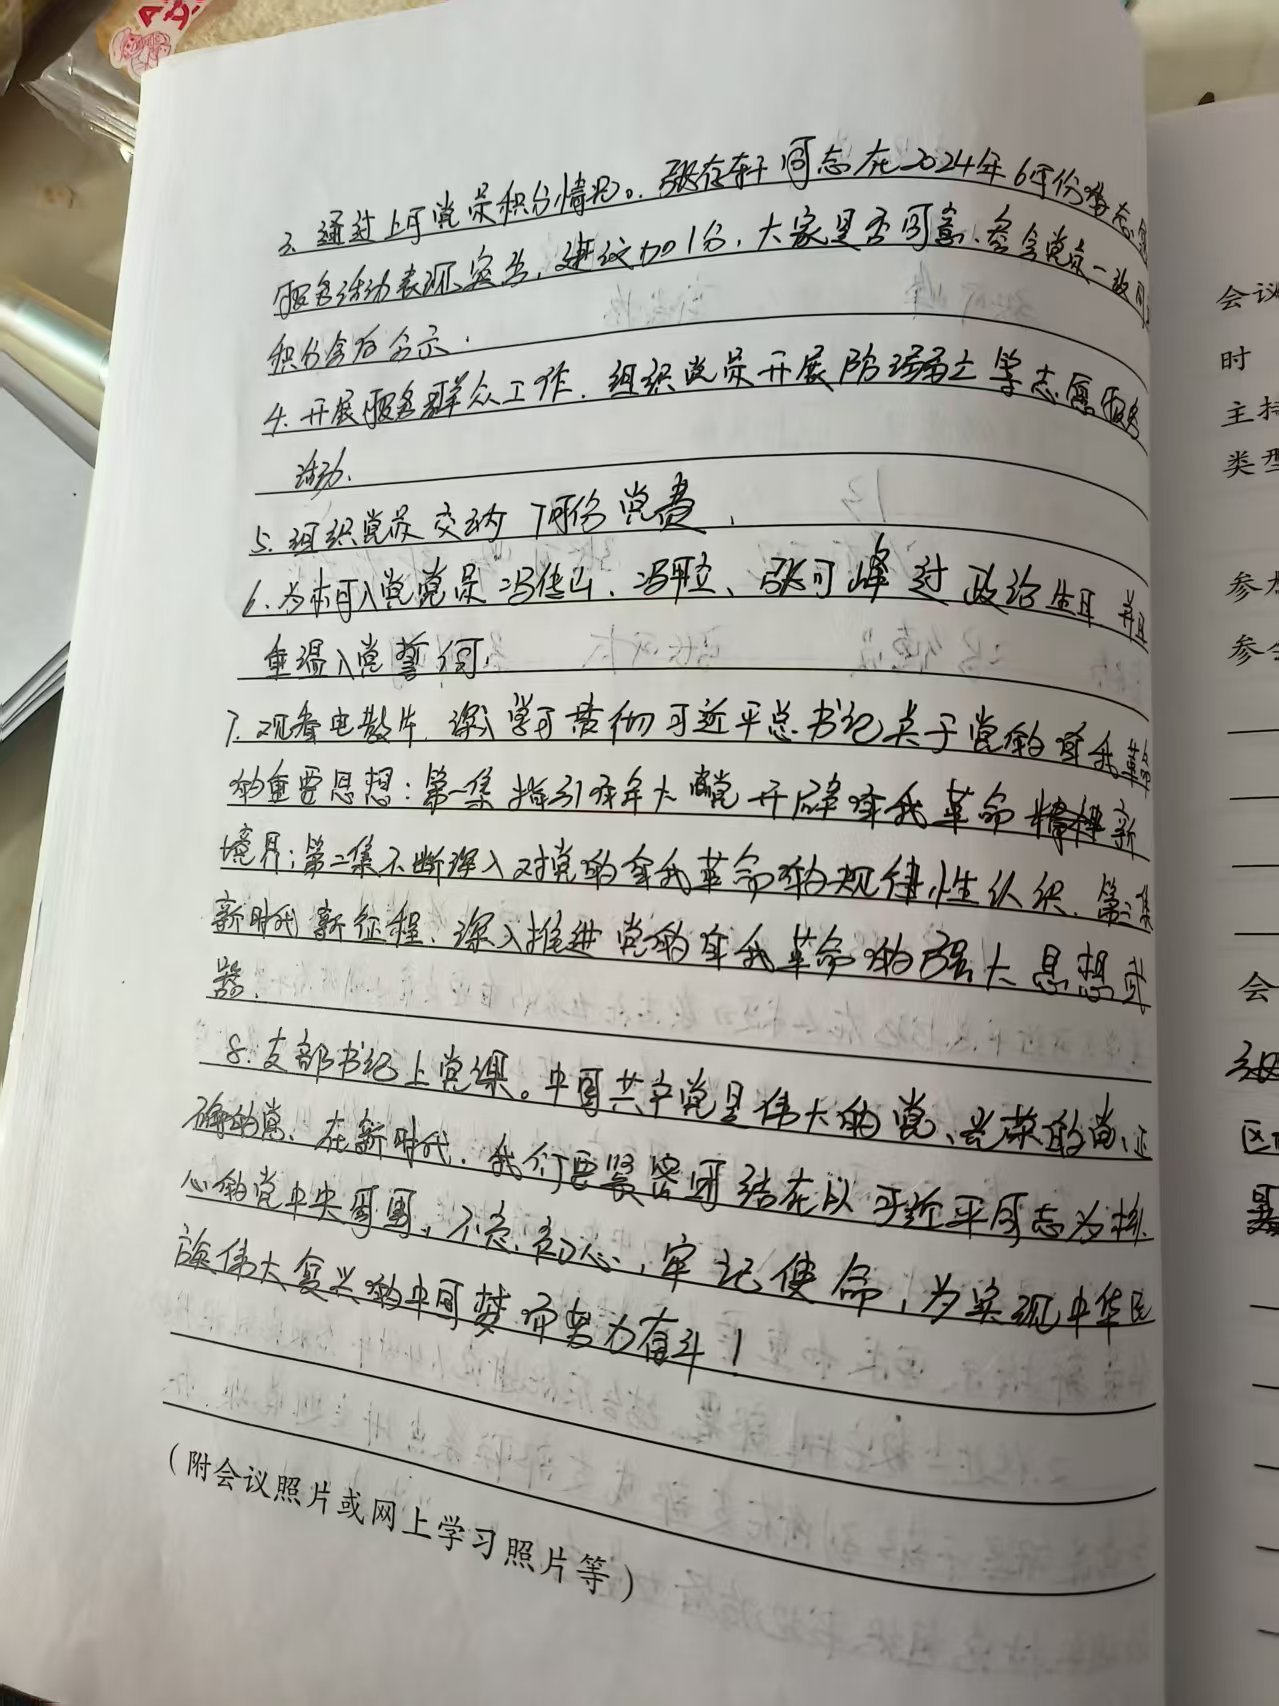 3. 通过上月党员积分情况。张存轩同志在2024年6月份
服务活动表现突出，建议加1分，大家是否同意、参会党员一致同
积分会后公示.
4. 开展服务群众工作. 组织党员开展防 志愿服务
活动.
5. 组织党员交纳7月份党费.
6. 为本月入党党员冯传山、冯 、张可峰过政治生日并且
重温入党誓词.
7. 观看电教片. 深入学习贯彻习近平总书记关于党的自我革命
的重要思想：第一集 指引百年大党开辟自我革命 新
境界；第二集不断深入对党的自我革命的规律性认识. 第三集
新时代新征程. 深入推进党的自我革命的强大思想武
器.
8. 支部书记上党课。中国共产党是伟大的党、光荣的党、正
确的党、在新时代. 我们要紧密团结在以习近平同志为核
心的党中央周围，不忘初心，牢记使命，为实现中华民
族伟大复兴的中国梦而努力奋斗！
（附会议照片或网上学习照片等）
会议
时
主持
类型
参
参会
会
区